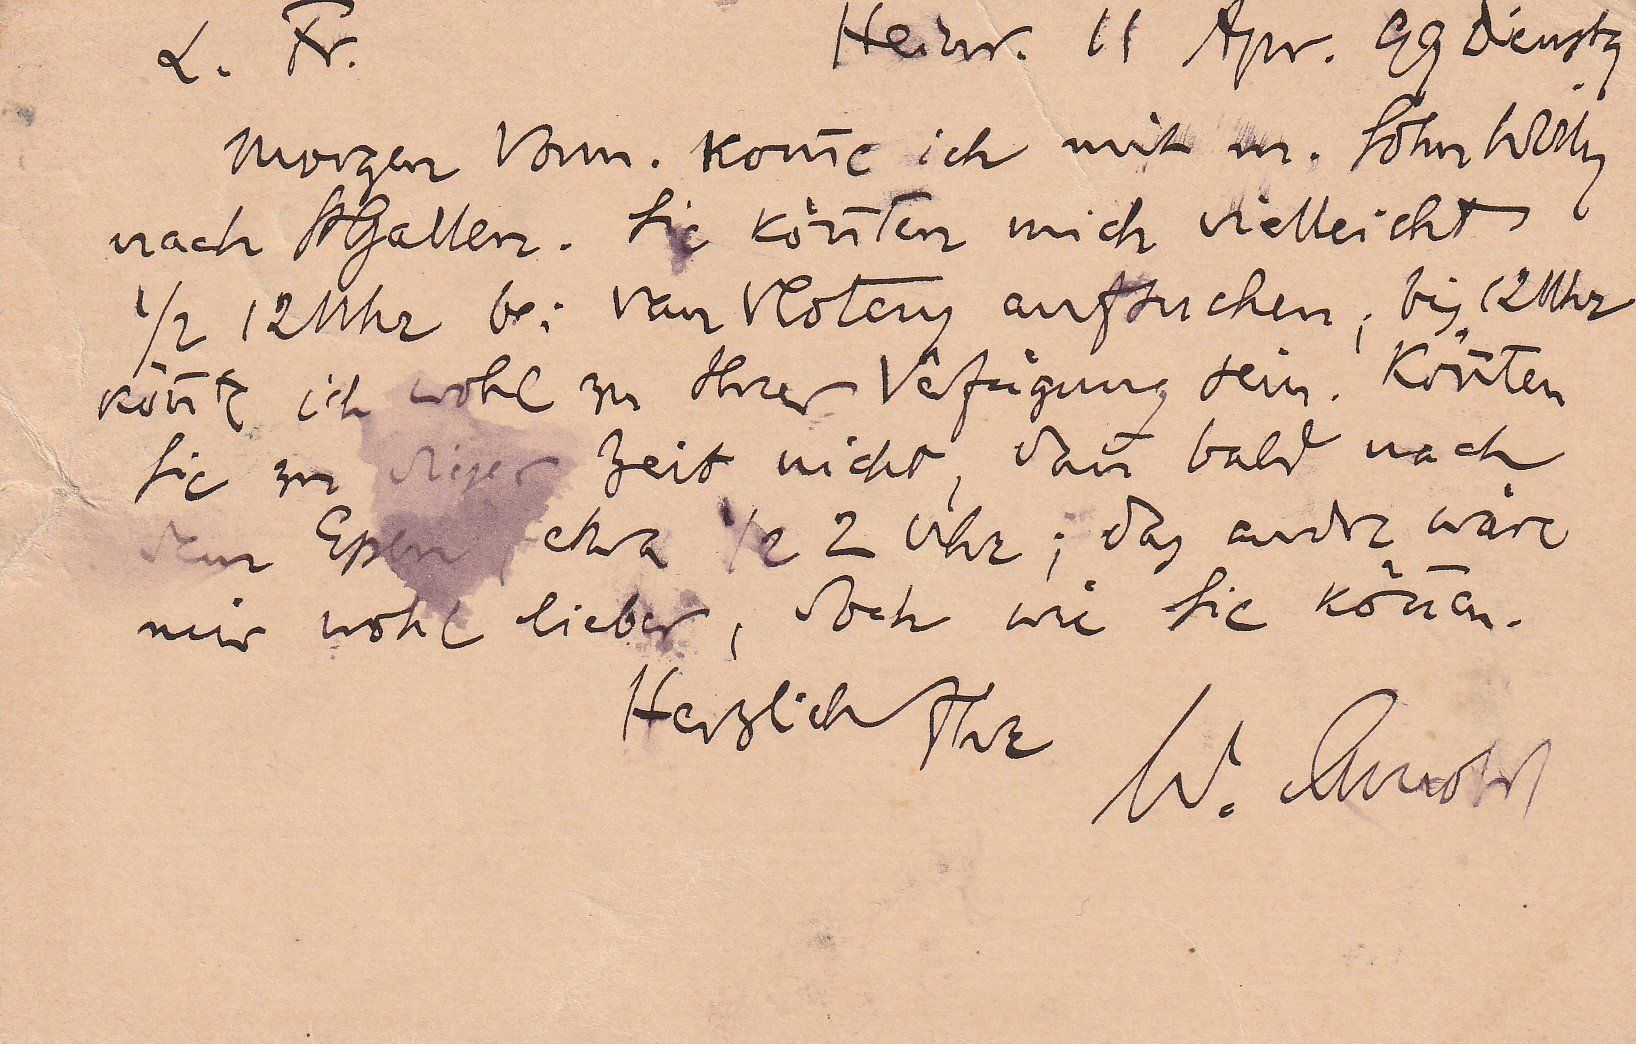 L. Fr. Heinr. 11 Apr. 99 Dienstg
Morgen Vorm. kom̄e ich mit m. Sohn Willy
nach St Gallen. Sie kön̄ten mich vielleicht
1/2 12 Uhr bei Van Vlotens aufsuchen; bis 12 Uhr
kön̄te ich wohl zu Ihrer Verfügung sein. Kön̄ten
Sie zu dieser Zeit nicht, dan̄ bald nach
dem Essen, etwa 1/2 2 Uhr; das andre wäre
mir wohl lieber, doch wie Sie kön̄en.
Herzlich Ihr
W. Arnold